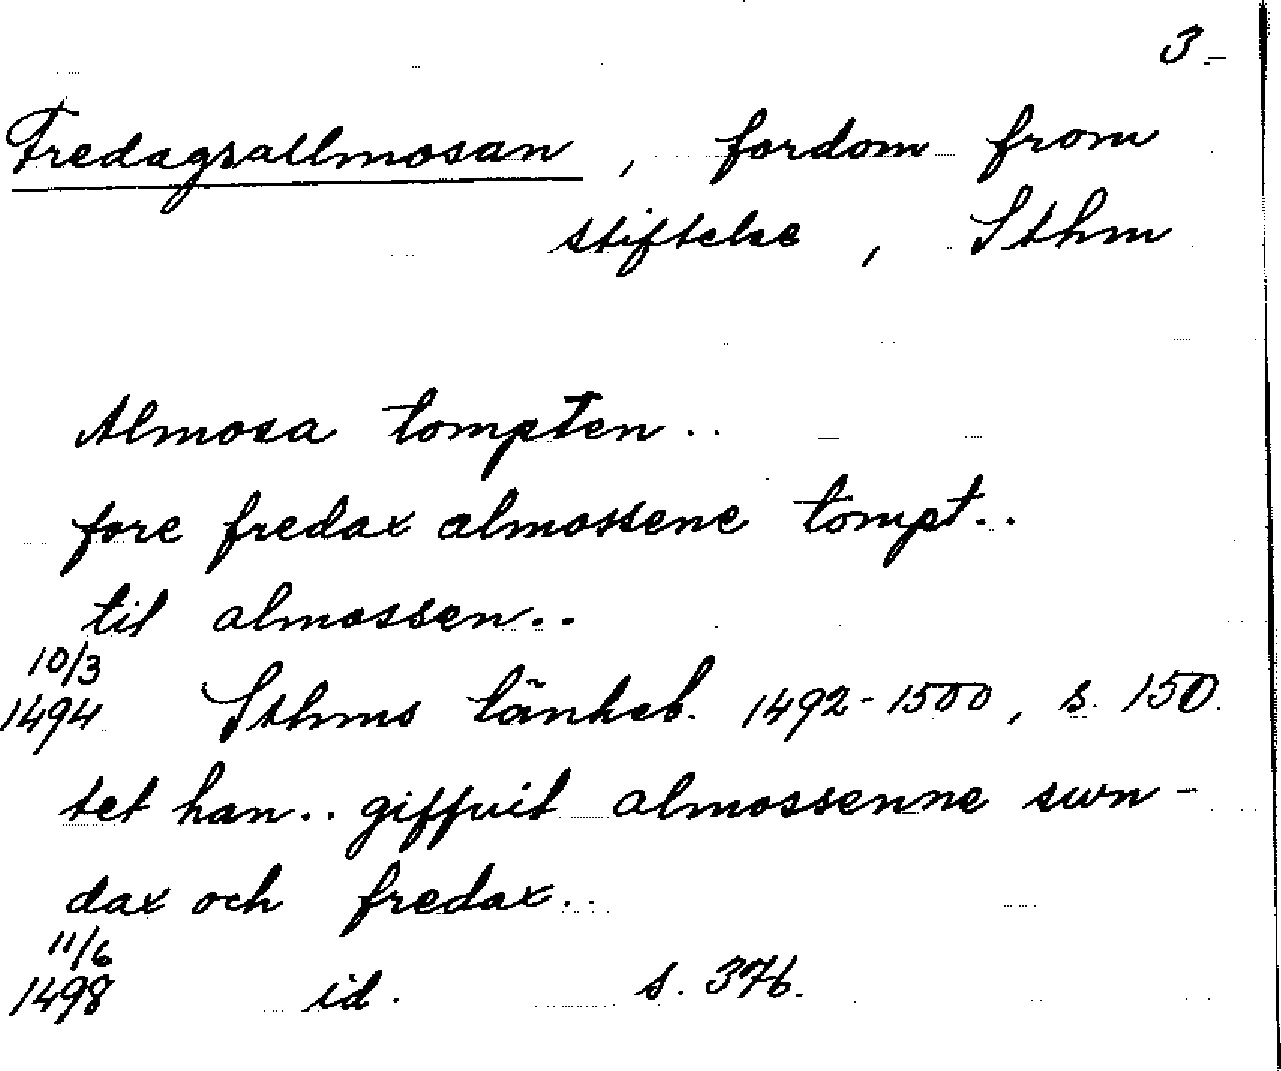 3-
Fredagsallmosan, fordom from
stiftelse, Sthm
Almosa tompten..
fore fredax almossene tompt..
til almossen..
10/3
1494 Sthms tänkeb. 1492-1500, s. 150.
tet han.. giffuit almossenne swn-
dax och fredax..
11/6
1498 id. s. 376.